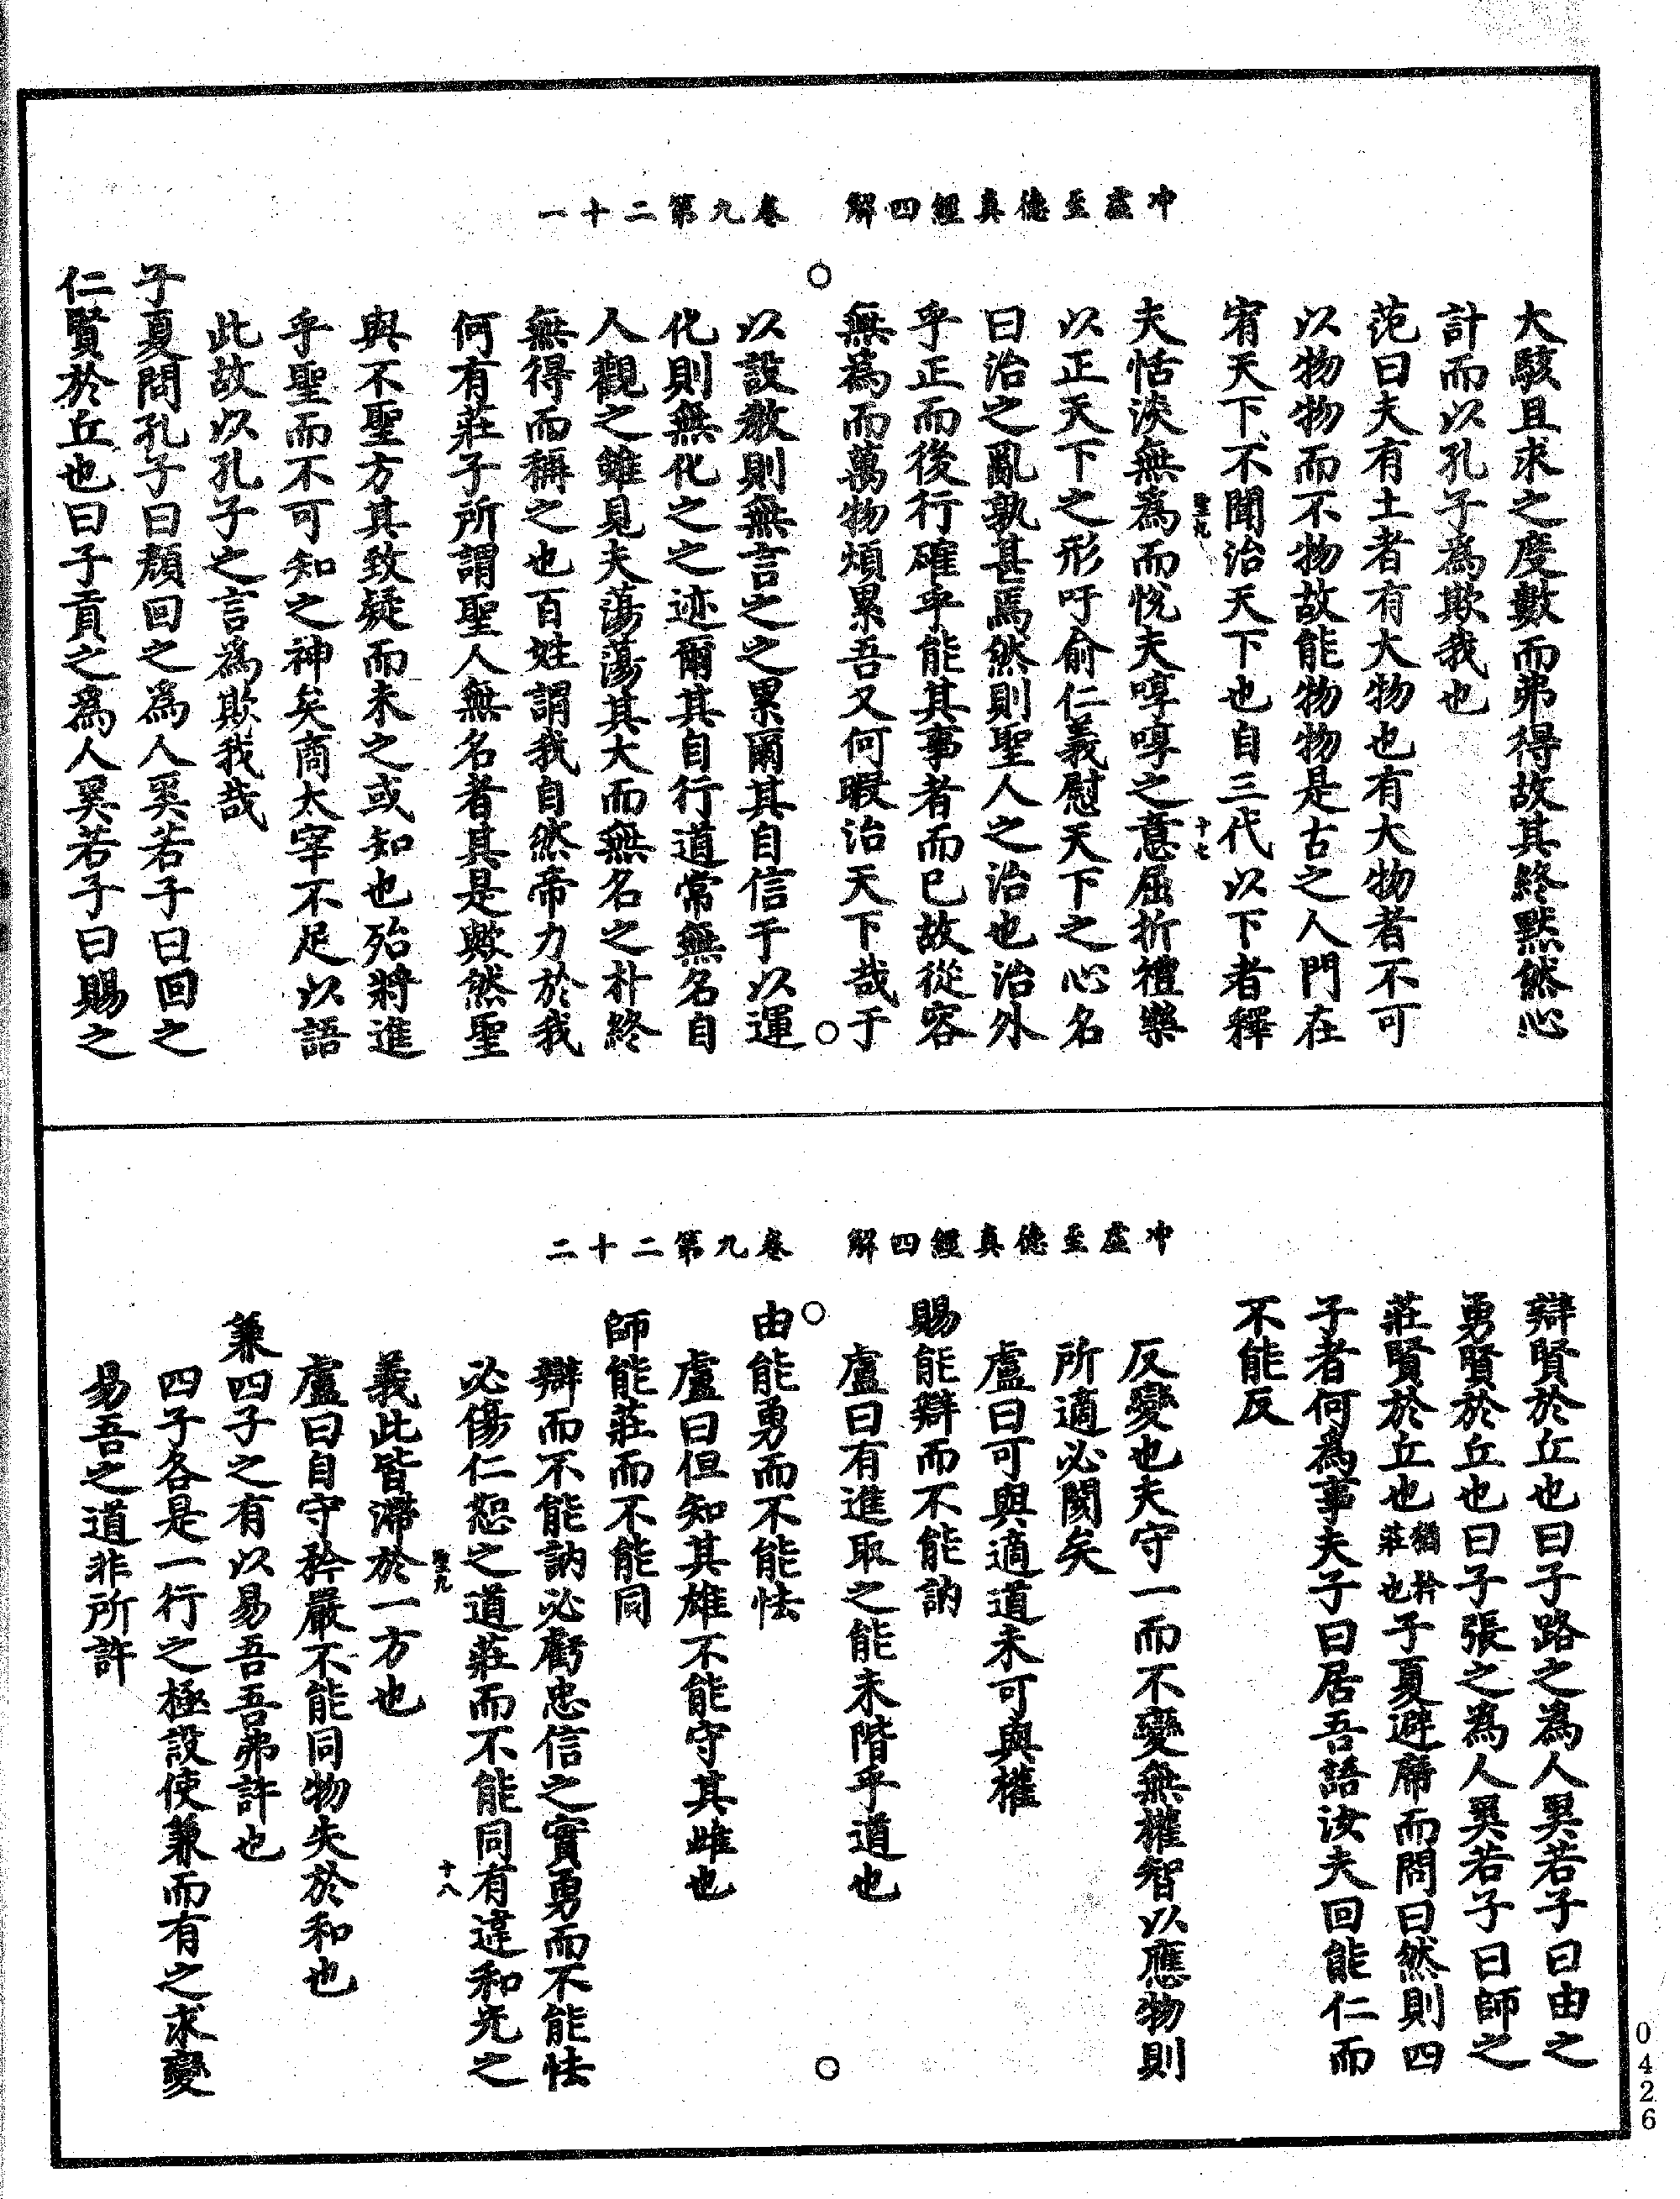 冲虛至德真經四解　卷九第二十一
大駭且求之度數而弗得故其終默然心
計而以孔子為欺我也
范曰夫有土者有大物也有大物者不可
以物物而不物故能物物是古之人門在
宥天下不聞治天下也自三代以下者釋
聖九　十七
夫恬淡無為而悅夫啍啍之意屈折禮樂
以正天下之形吁俞仁義慰天下之心名
曰治之亂孰甚焉然則聖人之治也治外
乎正而後行確乎能其事者而已故從容
無為而萬物煩累吾又何暇治天下哉于
以設教則無言之之累爾其自信于以運
化則無化之之迹爾其自行道常無名自
人觀之雖見夫蕩蕩其大而無名之朴終
無得而稱之也百姓謂我自然帝力於我
何有莊子所謂聖人無名者其是歟然聖
與不聖方其致疑而未之或知也殆將進
乎聖而不可知之神矣商太宰不足以語
此故以孔子之言為欺我哉
子夏問孔子曰顏回之為人奚若子曰回之
仁賢於丘也曰子貢之為人奚若子曰賜之
冲虛至德真經四解　卷九第二十二
辯賢於丘也曰子路之為人奚若子曰由之
勇賢於丘也曰子張之為人奚若子曰師之
莊賢於丘也猶矜莊也子夏避席而問曰然則四
子者何為事夫子曰居吾語汝夫回能仁而
不能反
反變也夫守一而不變無權智以應物則
所適必閡矣
盧曰可與適道未可與權
賜能辯而不能訥
盧曰有進取之能未階乎道也
由能勇而不能怯
盧曰但知其雄不能守其雌也
師能莊而不能同
辯而不能訥必虧忠信之實勇而不能怯
必傷仁恕之道莊而不能同有違和光之
聖九　十八
義此皆滯於一方也
盧曰自守矜嚴不能同物失於和也
兼四子之有以易吾吾弗許也
四子各是一行之極設使兼而有之求變
易吾之道非所許
0426